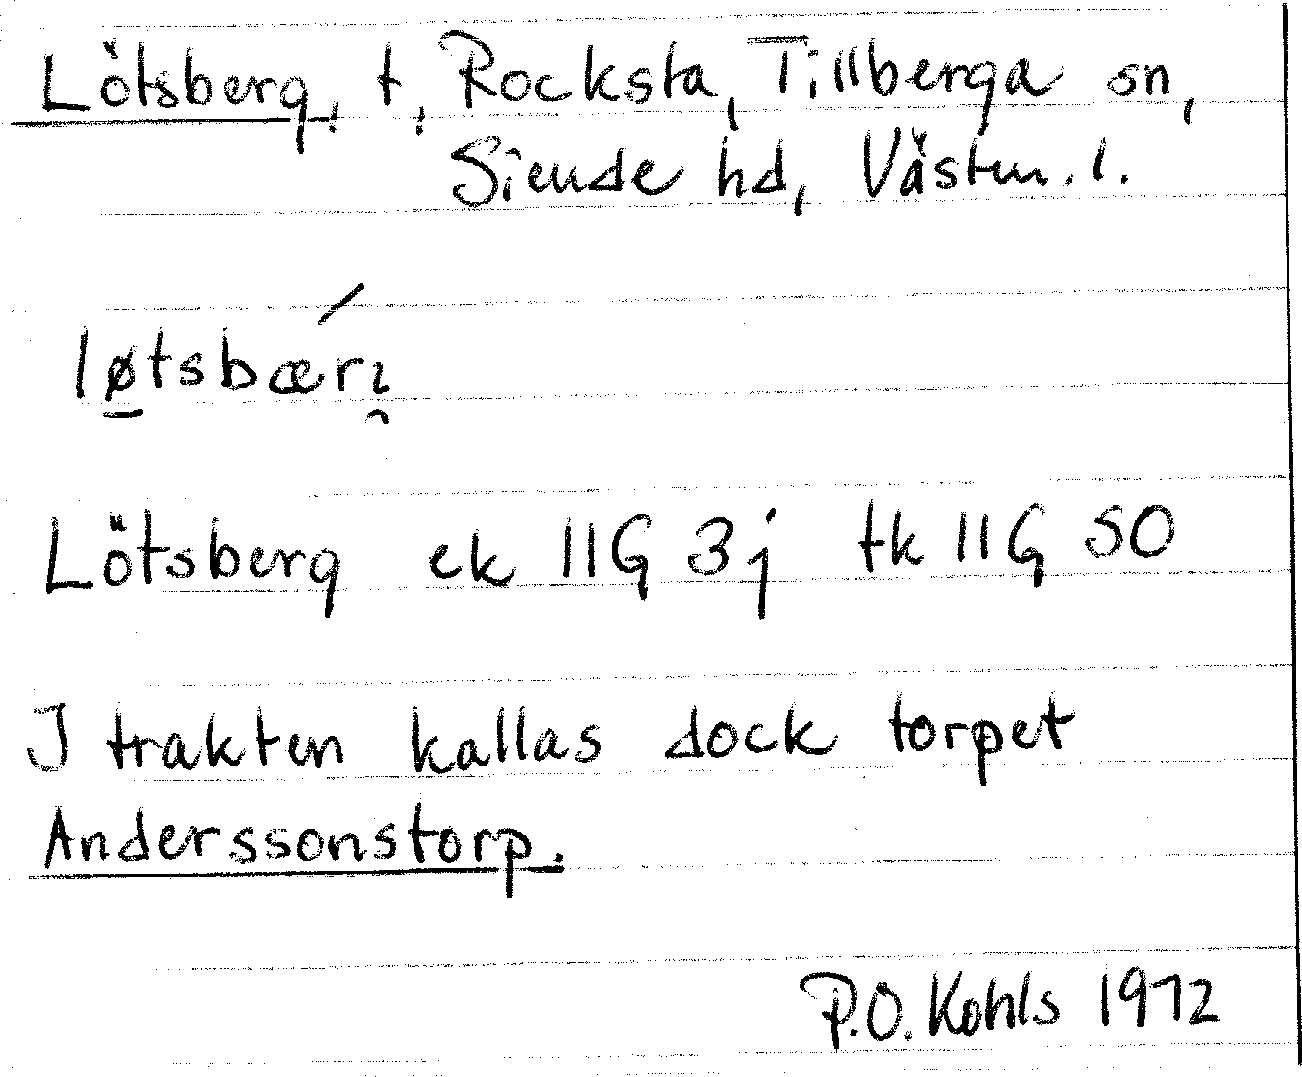 Lötsberg, t, Rocksta, Tillberga sn,
Siende hd, Västm. l.
løtsbærı̯
Lötsberg ek 11G 3j tk 11G SO
I trakten kallas dock torpet
Anderssonstorp.
P.O. Kohls 1972